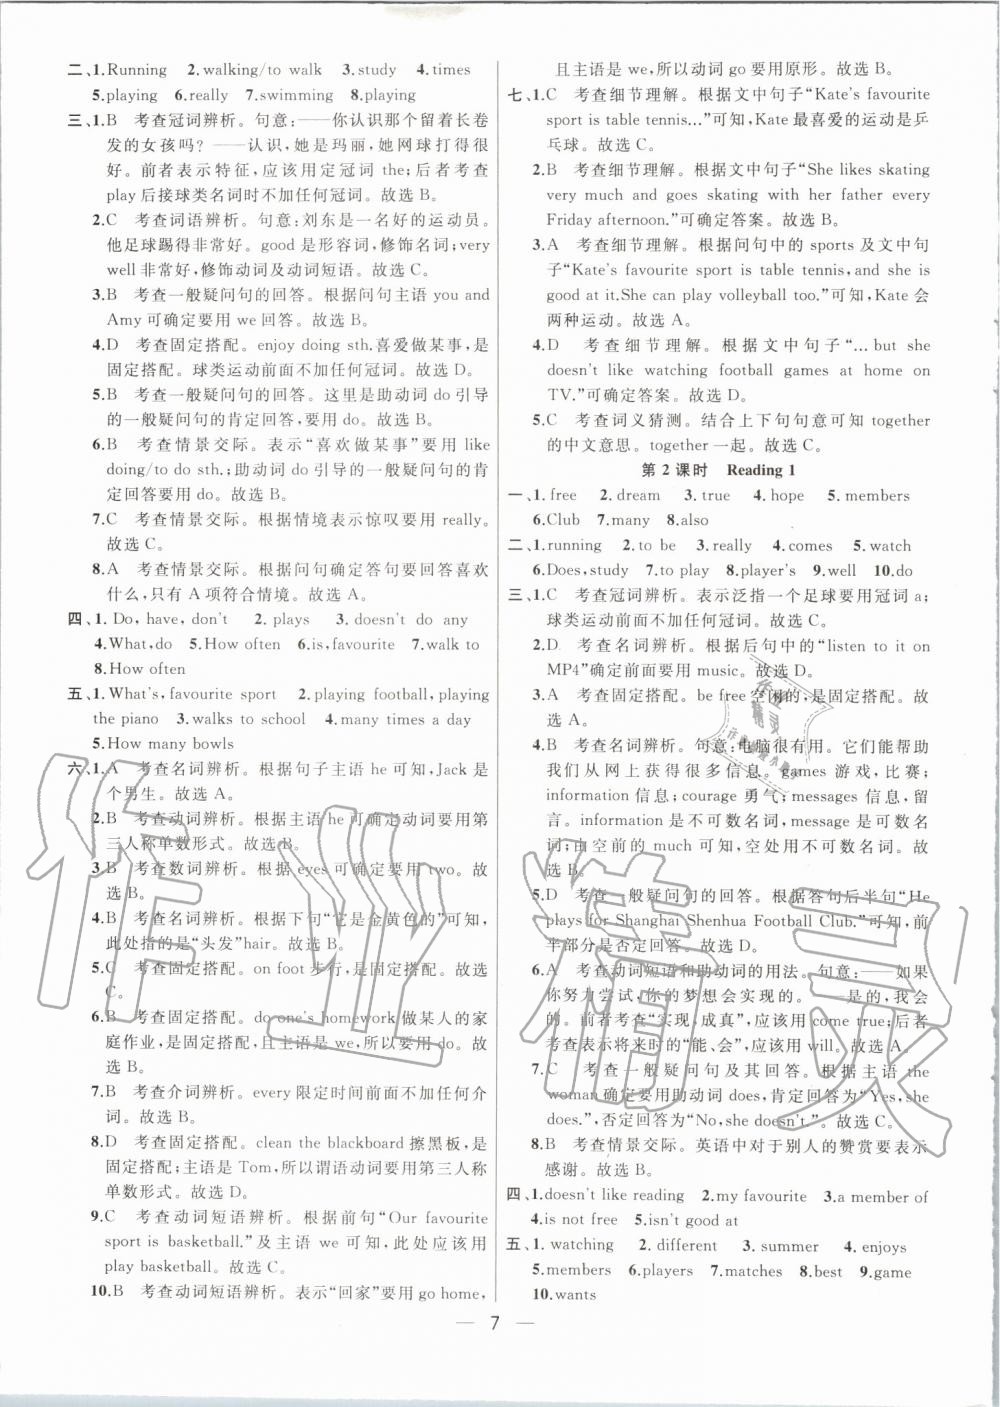 二、1.Running 2.walking/to walk 3.study 4.times
5.playing 6.really 7.swimming 8.playing
三、1.B 考查冠词辨析。句意:——你认识那个留着长卷
发的女孩吗? ——认识,她是玛丽,她网球打得很
好。前者表示特征,应该用定冠词 the;后者考查
play 后接球类名词时不加任何冠词。故选 B。
2.C 考查词语辨析。句意:刘东是一名好的运动员。
他足球踢得非常好。good 是形容词,修饰名词;very
well 非常好,修饰动词及动词短语。故选 C。
3.B 考查一般疑问句的回答。根据问句主语 you and
Amy 可确定要用 we 回答。故选 B。
4.D 考查固定搭配。enjoy doing sth.喜爱做某事,是
固定搭配。球类运动前面不加任何冠词。故选 D。
5.B 考查一般疑问句的回答。这里是助动词 do 引导
的一般疑问句的肯定回答,要用 do。故选 B。
6.B 考查情景交际。表示“喜欢做某事”要用 like
doing/to do sth.;助动词 do 引导的一般疑问句的肯
定回答要用 do。故选 B。
7.C 考查情景交际。根据情境表示惊叹要用 really。
故选 C。
8.A 考查情景交际。根据问句确定答句要回答喜欢
什么,只有 A 项符合情境。故选 A。
四、1. Do, have, don't 2. plays 3. doesn't do any
4.What,do 5.How often 6.is,favourite 7.walk to
8.How often
五、1.What's,favourite sport 2.playing football,playing
the piano 3.walks to school 4.many times a day
5.How many bowls
六、1.A 考查名词辨析。根据句子主语 he 可知,Jack 是
个男生。故选 A。
2.B 考查动词辨析。根据主语 he 可确定动词要用第
三人称单数形式。故选 B。
3.B 考查数词辨析。根据 eyes 可确定要用 two。故
选 B。
4.B 考查名词辨析。根据下句“它是金黄色的”可知,
此处指的是“头发”hair。故选 B。
5.C 考查固定搭配。on foot 步行,是固定搭配。故选
C。
6.B 考查固定搭配。do one's homework 做某人的家
庭作业,是固定搭配;主语是 we,所以要用 do。故
选 B。
7.B 考查介词辨析。every 限定时间前面不加任何介
词。故选 B。
8.D 考查固定搭配。clean the blackboard 擦黑板,是
固定搭配;主语是 Tom,所以谓语动词要用第三人称
单数形式。故选 D。
9.C 考查动词短语辨析。根据前句“Our favourite
sport is basketball.”及主语 we 可知,此处应该用
play basketball。故选 C。
10.B 考查动词短语辨析。表示“回家”要用 go home,
且主语是 we,所以动词 go 要用原形。故选 B。
七、1.C 考查细节理解。根据文中句子“Kate's favourite
sport is table tennis...”可知,Kate 最喜爱的运动是乒
乓球。故选 C。
2.B 考查细节理解。根据文中句子“She likes skating
very much and goes skating with her father every
Friday afternoon.”可确定答案。故选 B。
3.A 考查细节理解。根据问句中的 sports 及文中句
子“Kate's favourite sport is table tennis,and she is
good at it.She can play volleyball too.”可知,Kate 会
两种运动。故选 A。
4.D 考查细节理解。根据文中句子“... but she
doesn't like watching football games at home on
TV.”可确定答案。故选 D。
5.C 考查词义猜测。结合上下句句意可知 together
的中文意思。together 一起。故选 C。
第 2 课时 Reading 1
一、1. free 2. dream 3. true 4. hope 5. members
6.Club 7.many 8.also
二、1.running 2.to be 3.really 4.comes 5.watch
6.Does,study 7.to play 8.player's 9.well 10.do
三、1.C 考查冠词辨析。表示泛指一个足球要用冠词 a;
球类运动前面不加任何冠词。故选 C。
2.D 考查名词辨析。根据后句中的“listen to it on
MP4”确定前面要用 music。故选 D。
3.A 考查固定搭配。be free 空闲的,是固定搭配。故
选 A。
4.B 考查名词辨析。句意:电脑很有用。它们能帮助
我们从网上获得很多信息。games 游戏,比赛;
information 信息;courage 勇气;messages 信息,留
言。information 是不可数名词,message 是可数名
词;由空前的 much 可知,空处用不可数名词。故
选 B。
5.D 考查一般疑问句的回答。根据答句后半句“He
plays for Shanghai Shenhua Football Club.”可知,前
半部分是否定回答。故选 D。
6.A 考查动词短语和助动词的用法。句意:——如果
你努力尝试,你的梦想会实现的。——是的,我会
的。前者考查“实现,成真”,应该用 come true;后者
考查表示将来时的“能、会”,应该用 will。故选 A。
7.C 考查一般疑问句及其回答。根据主语 the
woman 确定要用助动词 does,肯定回答为“Yes,she
does.”,否定回答为“No,she doesn't.”。故选 C。
8.B 考查情景交际。英语中对于别人的赞赏要表示
感谢。故选 B。
四、1.doesn't like reading 2.my favourite 3.a member of
4.is not free 5.isn't good at
五、1. watching 2. different 3. summer 4. enjoys
5.members 6.players 7.matches 8.best 9.game
10.wants
— 7 —
作业精灵